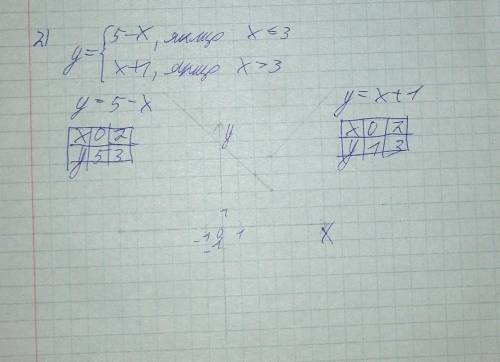 2) y = { 5-x, якщо x ≤ 3
x+1, якщо x > 3
y = 5-x
x 0 2
y 5 3
y = x+1
x 0 2
y 1 3
y
1
-1 0 1
x
-1